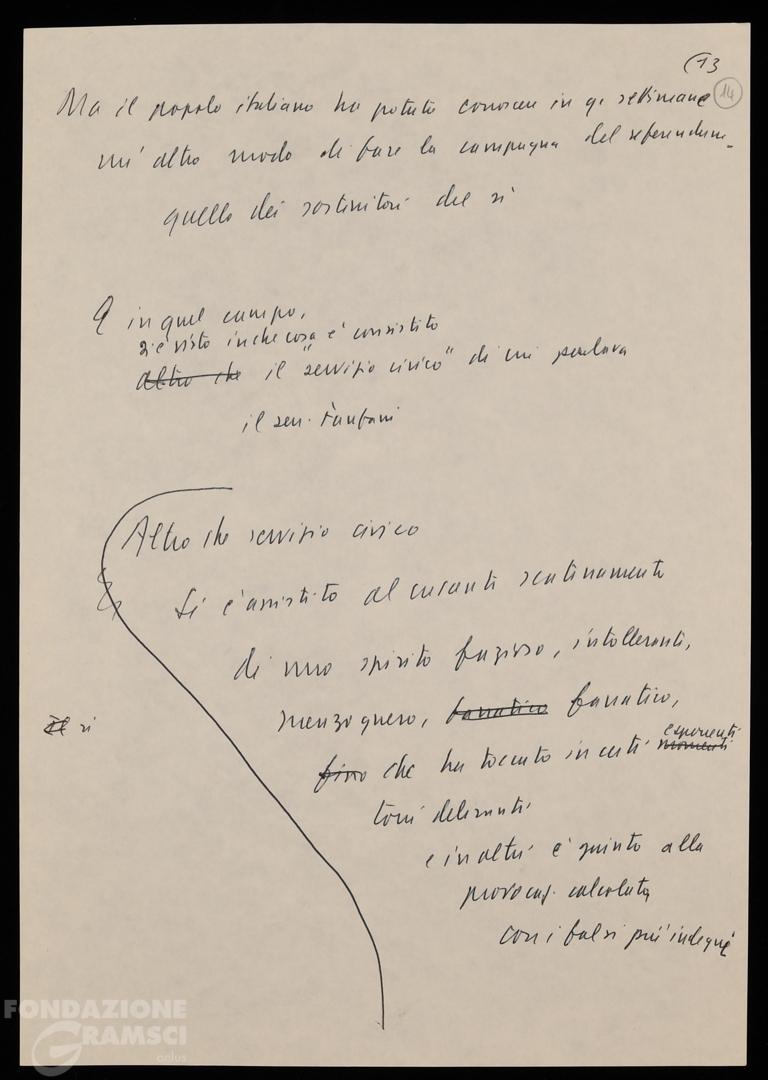 (13
14
Ma il popolo italiano ha potuto conoscere in q. settimane
un'altro modo di fare la campagna del referendum.
quello dei sostenitori del sì
E in quel campo,
si è visto in che cosa è consistito
altro che il "servizio civico" di cui parlava
il sen. Fanfani
Altro che servizio civico
Si è assistito al scatenamento
di uno spirito fazioso, intollerante,
menzognero, fanatico fanatico,
fino che ha toccato in certi momenti esponenti
toni deliranti
e in altri è giunto alla
provocaz. calcolata
con i falsi più indegni
si
FONDAZIONE
GRAMSCI
onlus